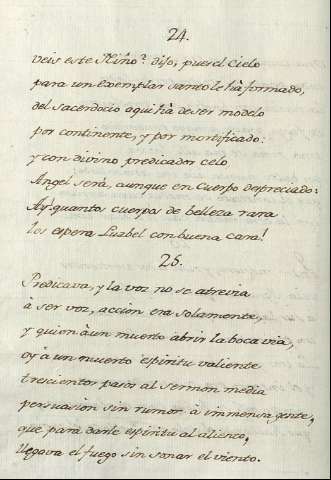 24.
veis este Niño? dijo, pues el Cielo
para un Exemplar santo le hà formado,
del sacerdocio aqui hà de ser modelo
por continente, y por mortificado:
y con divino predicador celo
Angel serà, aunque en Cuerpo despreciado:
Ay! quantos cuerpos de belleza rara
los espera Luzbel con buena cara!
25.
Predicava, y la voz no se atrevia
à ser voz, accion era solamente,
y quien à un muerto abrir la boca via,
oy à un muerto espiritu valiente
trescientos pasos al sermon media
persuasion sin rumor à immensa gente,
que para darle espiritu al aliento,
llegava el fuego sin sonar el viento.